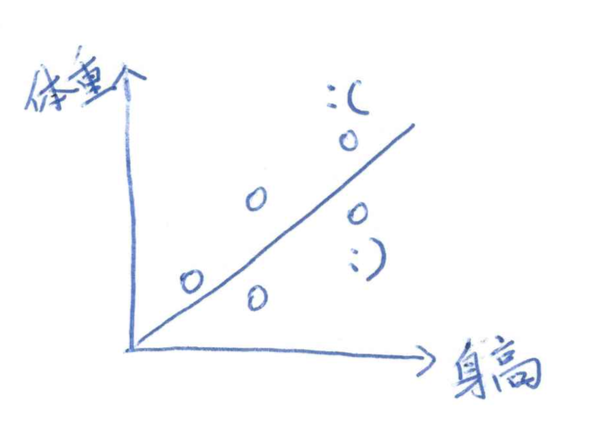 体重
:(
:)
身高